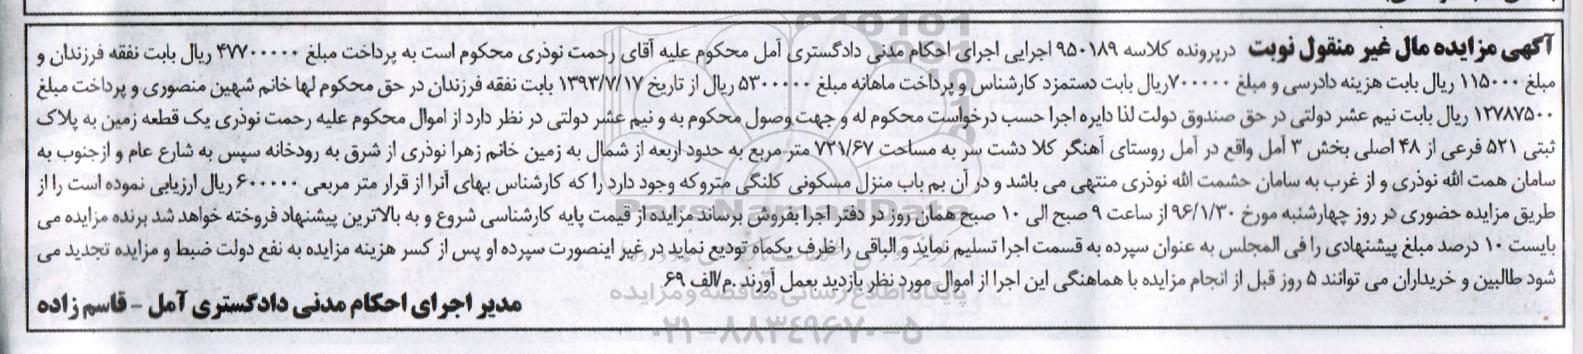 آگهی مزایده مال غیر منقول نوبت درپرونده کلاسه ۹۵۰۱۸۹ اجرایی اجرای احکام مدنی دادگستری آمل محکوم علیه آقای رحمت نوذری محکوم است به پرداخت مبلغ ۴۷۷۰۰۰۰۰ ریال بابت نفقه فرزندان و
مبلغ ۱۱۵۰۰۰ ریال بابت هزینه دادرسی و مبلغ ۷۰۰۰۰۰ریال بابت دستمزد کارشناس و پرداخت ماهانه مبلغ ۵۳۰۰۰۰۰ ریال از تاریخ ۱۳۹۳/۷/۱۷ بابت نفقه فرزندان در حق محکوم لها خانم شهین منصوری و پرداخت مبلغ
۱۲۷۸۷۵۰۰ ریال بابت نیم عشر دولتی در حق صندوق دولت لذا دایره اجرا حسب درخواست محکوم له و جهت وصول محکوم به و نیم عشر دولتی در نظر دارد از اموال محکوم علیه رحمت نوذری یک قطعه زمین به پلاک
ثبتی ۵۲۱ فرعی از ۴۸ اصلی بخش ۳ آمل واقع در آمل روستای آهنگر کلا دشت سر به مساحت ۷۲۱/۶۷ متر مربع به حدود اربعه از شمال به زمین خانم زهرا نوذری از شرق به رودخانه سپس به شارع عام و ازجنوب به
سامان همت الله نوذری و از غرب به سامان حشمت الله نوذری منتهی می باشد و در آن بم باب منزل مسکونی کلنگی متروکه وجود دارد را که کارشناس بهای آنرا از قرار متر مربعی ۶۰۰۰۰۰ ریال ارزیابی نموده است را از
طریق مزایده حضوری در روز چهارشنبه مورخ ۹۶/۱/۳۰ از ساعت ۹ صبح الی ۱۰ صبح همان روز در دفتر اجرا بفروش برساند مزایده از قیمت پایه کارشناسی شروع و به بالاترین پیشنهاد فروخته خواهد شد برنده مزایده می
بایست ۱۰ درصد مبلغ پیشنهادی را فی المجلس به عنوان سپرده به قسمت اجرا تسلیم نماید و الباقی را ظرف یکماه تودیع نماید در غیر اینصورت سپرده او پس از کسر هزینه مزایده به نفع دولت ضبط و مزایده تجدید می
شود طالبین و خریداران می توانند ۵ روز قبل از انجام مزایده با هماهنگی این اجرا از اموال مورد نظر بازدید بعمل آورند .م/الف ۶۹
مدیر اجرای احکام مدنی دادگستری آمل - قاسم زاده
ParsNamadData
پایگاه اطلاع رسانی مناقصه و مزایده
۰۲۱-۸۸۳۴۹۶۷۰-۵